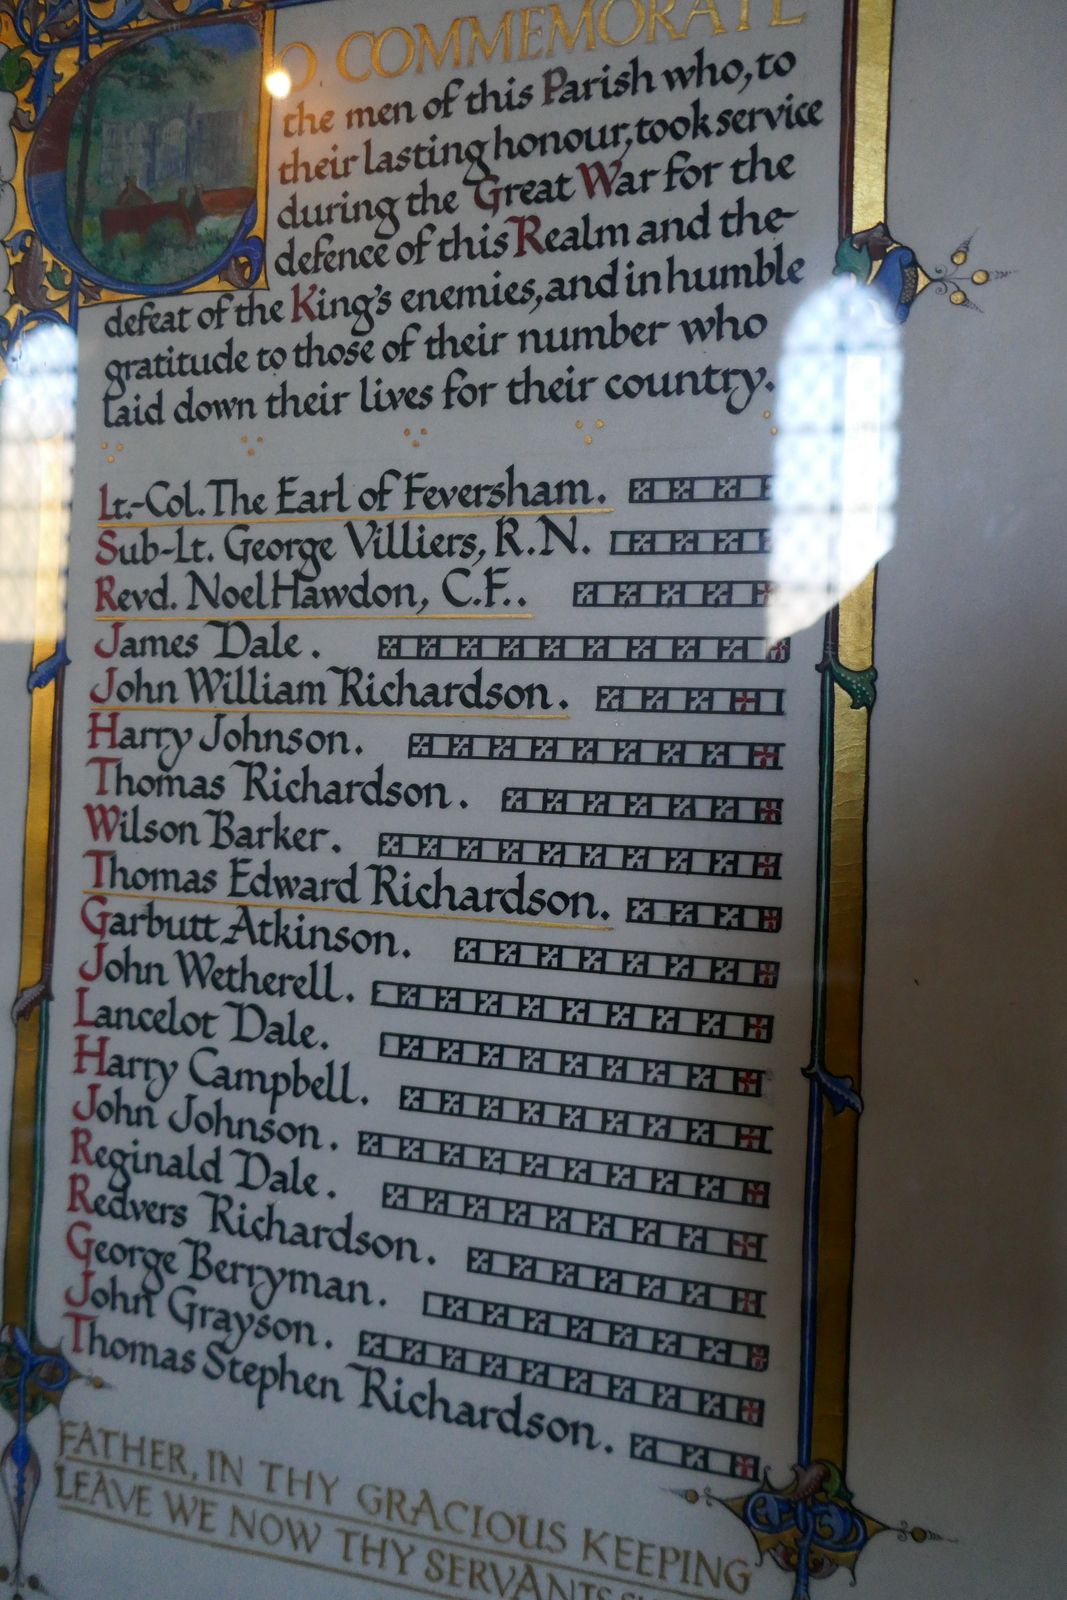 TO COMMEMORATE
the men of this Parish who, to
their lasting honour, took service
during the Great War for the
defence of this Realm and the
defeat of the King's enemies, and in humble
gratitude to those of their number who
laid down their lives for their country.
Lt.-Col. The Earl of Feversham.
Sub-Lt. George Villiers, R.N.
Revd. Noel Hawdon, C.F..
James Dale.
John William Richardson.
Harry Johnson.
Thomas Richardson.
Wilson Barker.
Thomas Edward Richardson.
Garbutt Atkinson.
John Wetherell.
Lancelot Dale.
Harry Campbell.
John Johnson.
Reginald Dale.
Redvers Richardson.
George Berryman.
John Grayson.
Thomas Stephen Richardson.
FATHER, IN THY GRACIOUS KEEPING
LEAVE WE NOW THY SERVANTS